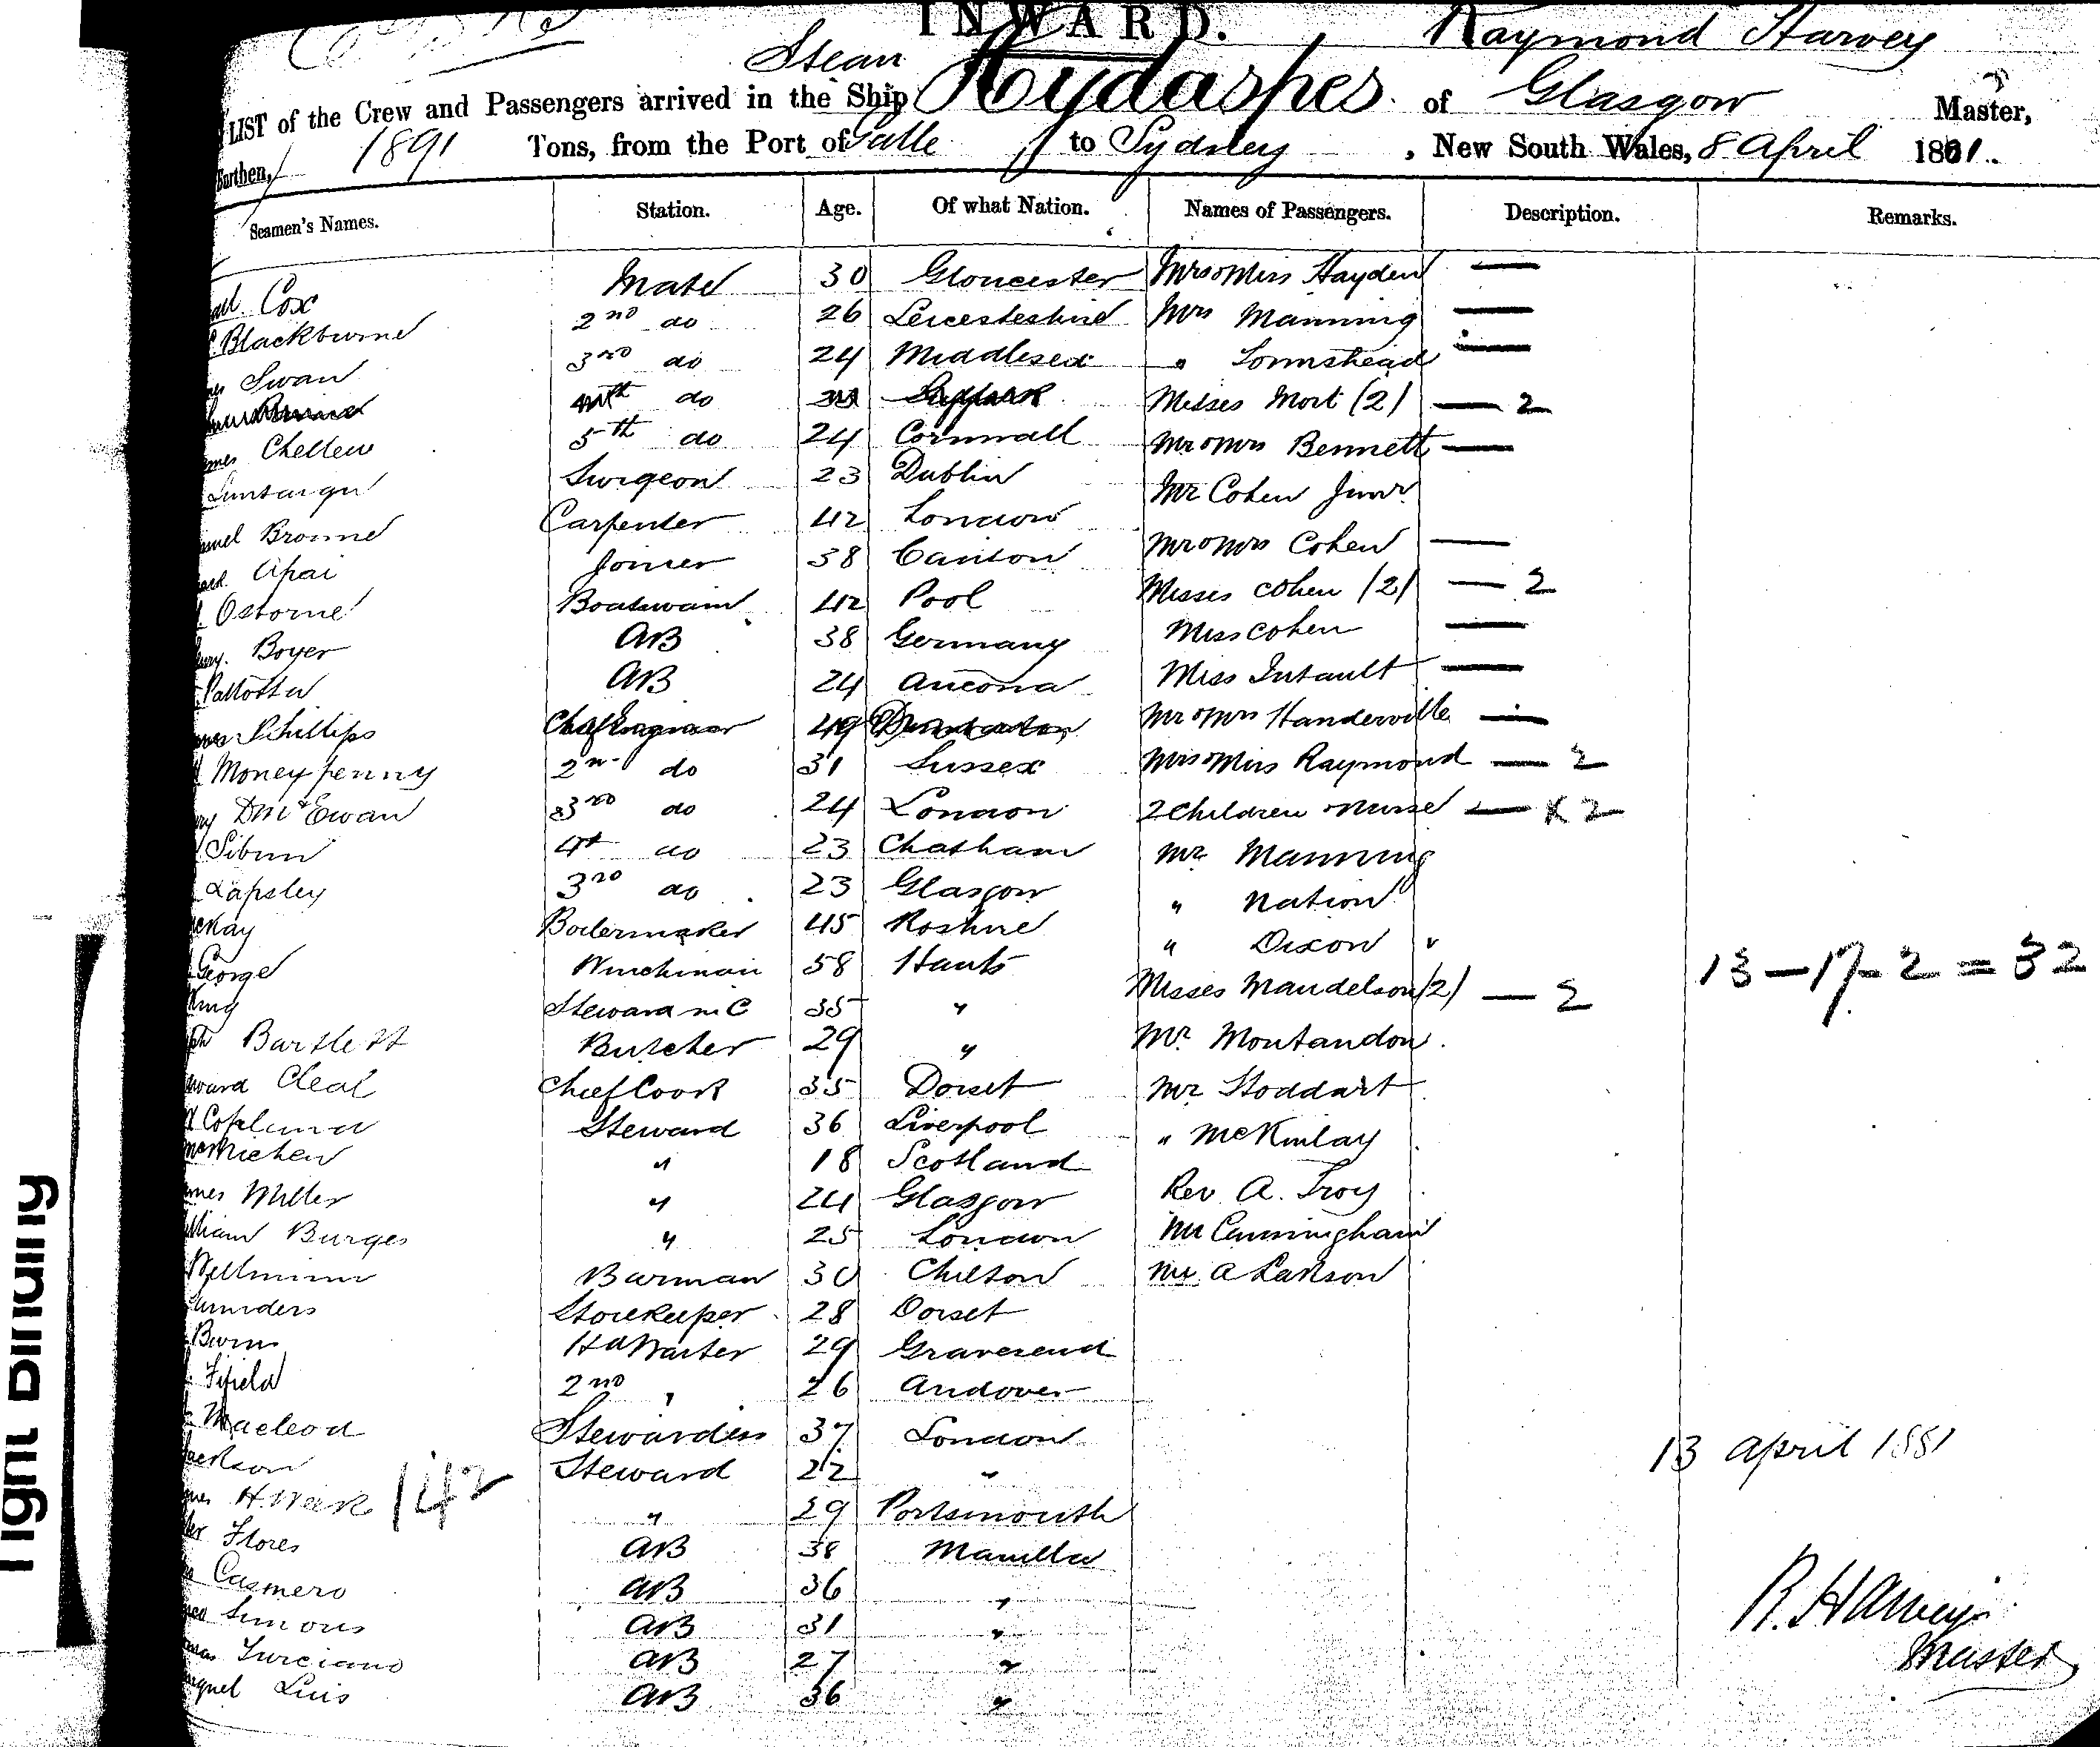 INWARD.
Raymond Harvey
Steam
LIST of the Crew and Passengers arrived in the Ship Hydaspes of Glasgow Master,
Burthen, 1891 Tons, from the Port of Galle to Sydney, New South Wales, 8 April 1881.
Seamen's Names. Station. Age. Of what Nation. Names of Passengers. Description. Remarks.
Cox Mate 30 Gloucester Mrs & Miss Hayden —
Blackburne 2nd do 26 Leicesteshire Mrs Manning —
Swan 3rd do 24 Middlesex " —
do Misses Mort (2) — 2
Chellew 5th do 24 Cornwall Mr & Mrs Bennett —
Surgeon 23 Dublin Mr Cohen Junr
Browne Carpenter 42 London Mr & Mrs Cohen —
Apai Joiner 38 Canton Misses Cohen (2) — 2
Osborne Boatswain 42 Pool Miss Cohen —
Boyer AB 38 Germany Miss —
Pallotta AB 24 Ancona Mr & Mrs Handerville —
Phillips Chf Engineer 49 Mrs & Miss Raymond — 2
Moneypenny 2nd do 31 Sussex 2 Children & Nurse — X 2
D McEwan 3rd do 24 London Mr Manning
Sibun 4th do 23 Chatham " Nation
Lapsley 3rd do 23 Glasgow " Dixon "
McKay Boilermaker 45 Misses Mandelson (2) — 2 13 — 17 - 2 = 32
George Winchman 58 Hants Mr Montandon
King Steward in C 35 " Mr Stoddart
Bartlett Butcher 29 " " McKinlay
Edward Cleal Chief Cook 35 Dorset Rev A. Troy
Copeland Steward 36 Liverpool Mr Cunningham
McMichen " 18 Scotland Mr A Larson
James Miller " 24 Glasgow
William Burges " 25 London
Wellman Barman 30 Chilton
Saunders Storekeeper 28 Dorset
Burns Hd Waiter 29 Gravesend
Fifield 2nd " 26 Andover
Macleod Stewardess 37 London
Jackson Steward 22 " 13 April 1881
H. Week 142 " 29 Portsmouth
Flores AB 38 Manilla
Casmero AB 36 "
Simons AB 31 "
Turciano AB 27 "
Miguel Luis AB 36 "
R. Harvey
Master
Tight Binding